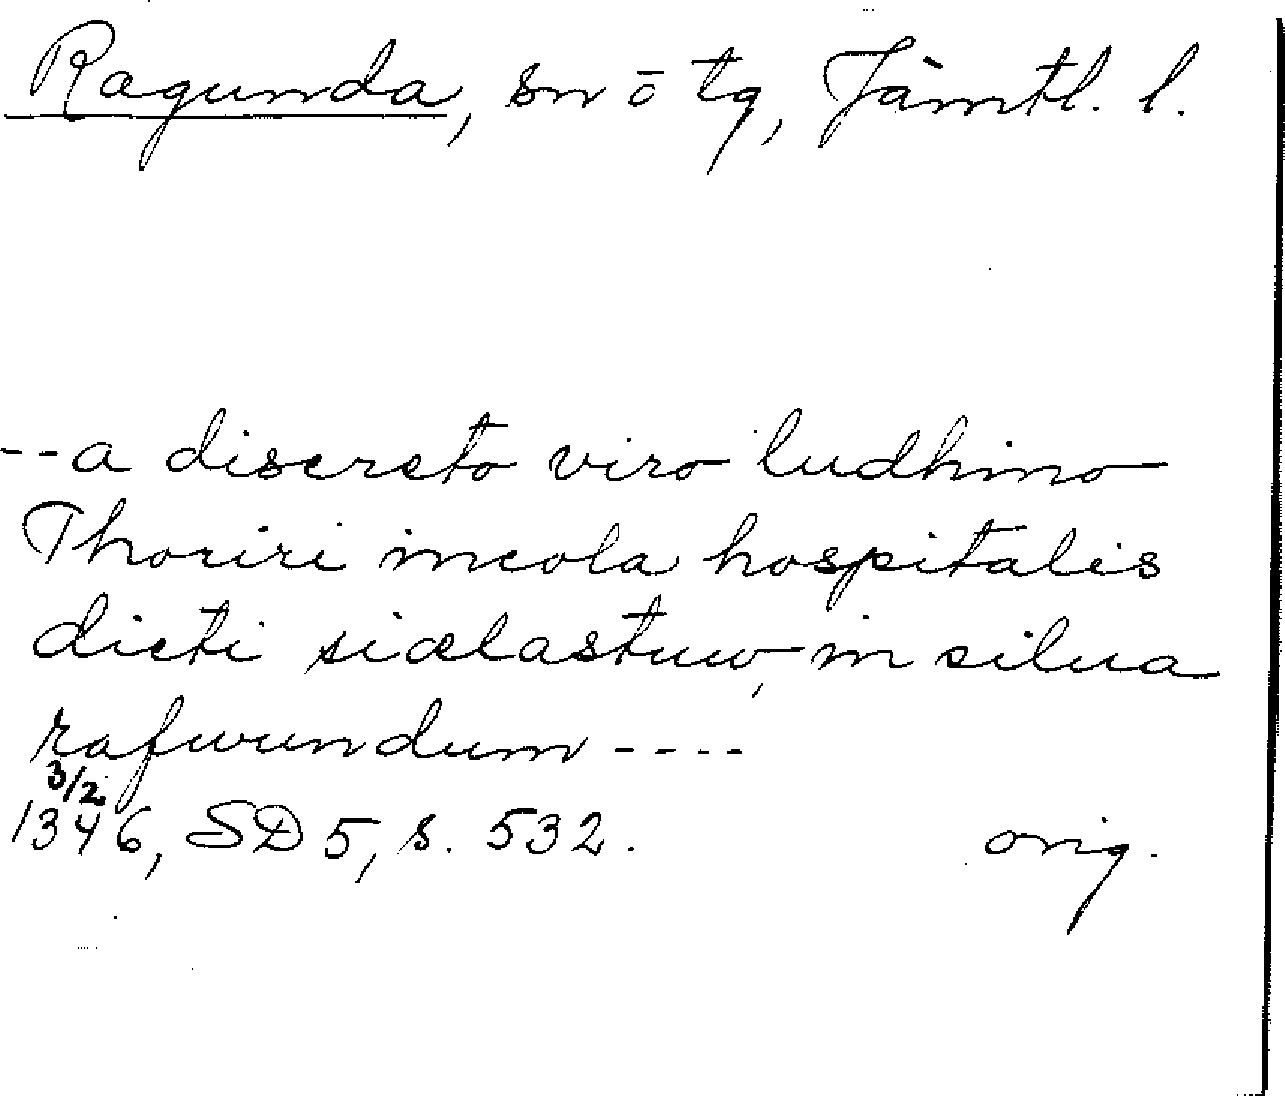 Ragunda, sn o tg, Jämtl. l.
-- a discreto viro ludhino
Thoriri incola hospitalis
dicti siælastuw, in silua
rafwundum ----
3/2
1346, SD 5, s. 532. orig.